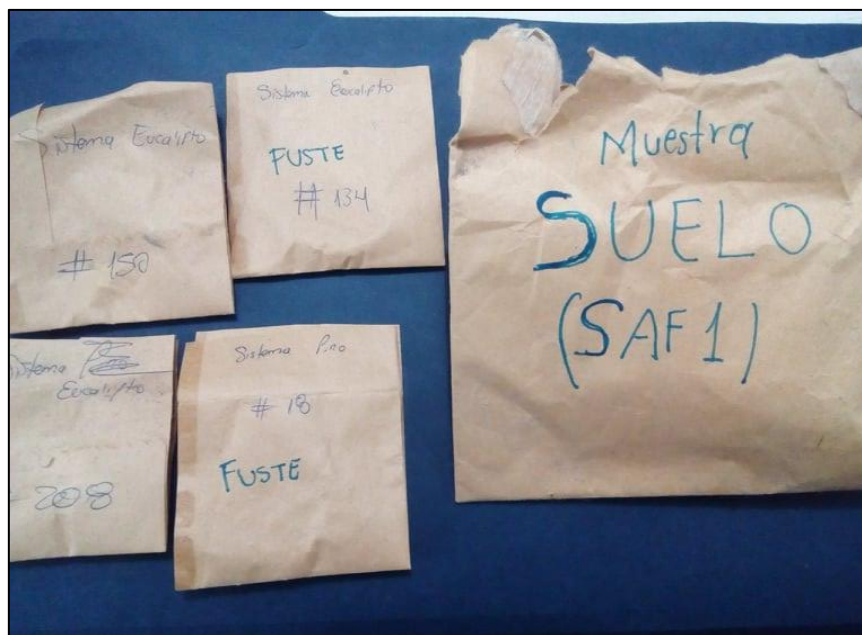 Sistema Eucalipto
# 150
Sistema Eucalipto
FUSTE
# 134
Muestra
SUELO
(SAF 1)
istema
Eucalipto
208
Sistema Pino
# 18
FUSTE